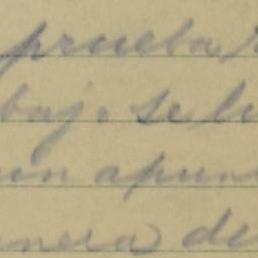 prueba
baj. se l
un apun
nera de